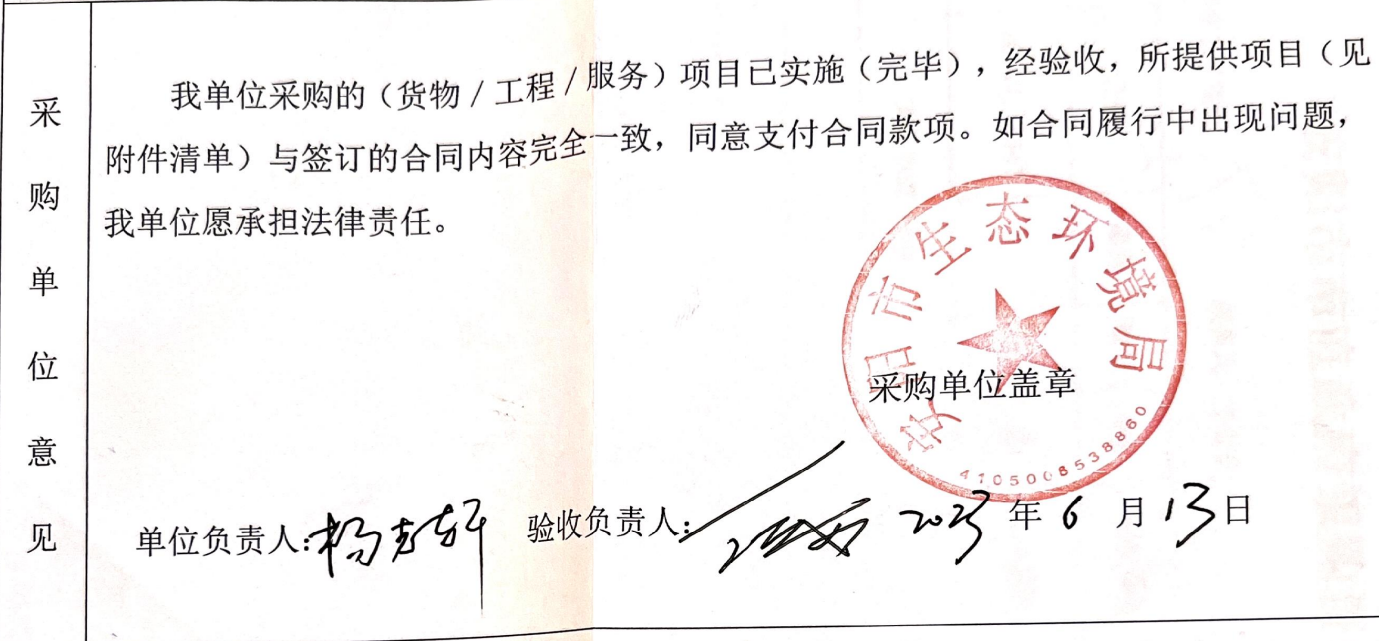 采购单位意见
我单位采购的（货物/工程/服务）项目已实施（完毕），经验收，所提供项目（见
附件清单）与签订的合同内容完全一致，同意支付合同款项。如合同履行中出现问题，
我单位愿承担法律责任。
安阳市生态环境局
采购单位盖章
4105006538860
单位负责人：杨 验收负责人： 2023年6月13日